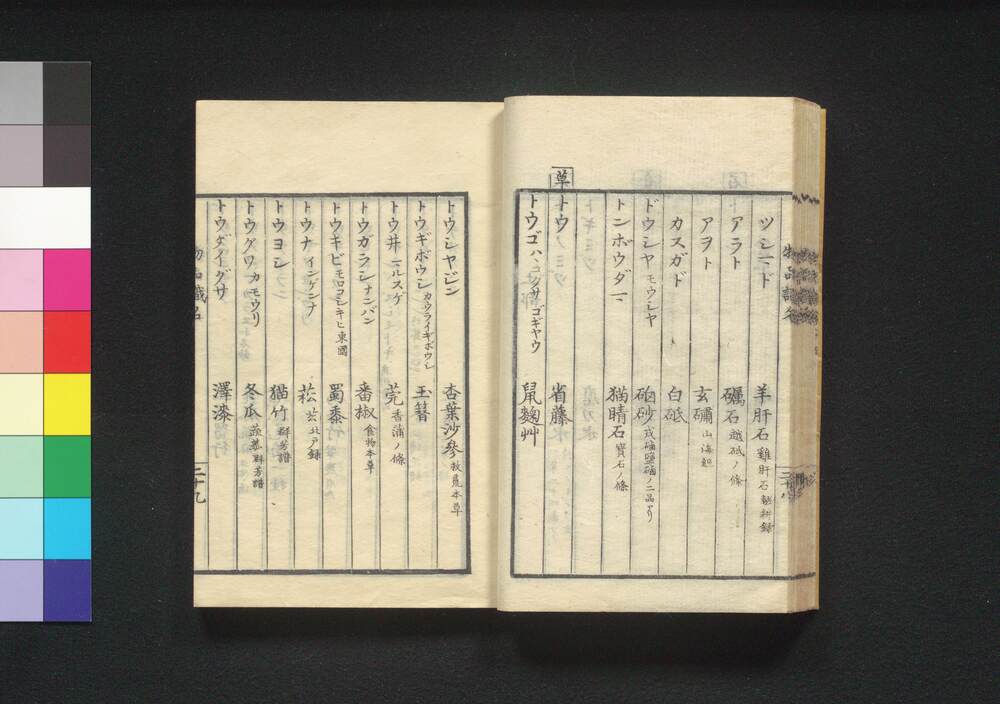 ツシマド 羊肝石 雞肝石 輟耕録
アラト 礪石 越砥ノ條
アヲト 玄䃤 山海經
カスガド 白砥
ドウシヤ モウシヤ 硇砂 戎硇鹽硇ノ二品アリ
トンボウダマ 猫睛石 寳石ノ條
草
トウ 省藤
トウゴ ハヽコグサ ゴギヤウ 鼠麴艸
トウシヤジン 杏葉沙參 救荒本草
トウギボウシ カウライギボウシ 玉簪
トウ井 マルスゲ 莞 香蒲ノ條
トウガラシ ナンバン 番椒 食物本草
トウキビ モロコシキヒ 東國 蜀黍
トウナ インゲンナ 菘 北戸録
トウヨシ 猫竹 群芳譜
トウグワ カモウリ 冬瓜 蔬菜 群芳譜
トウダイグサ 澤漆
物品識名
二十九